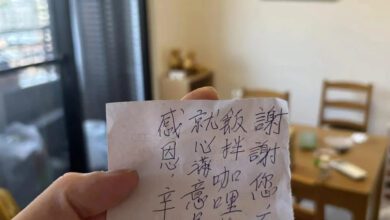 謝謝您
飯拌咖哩
就心滿意
感恩 辛